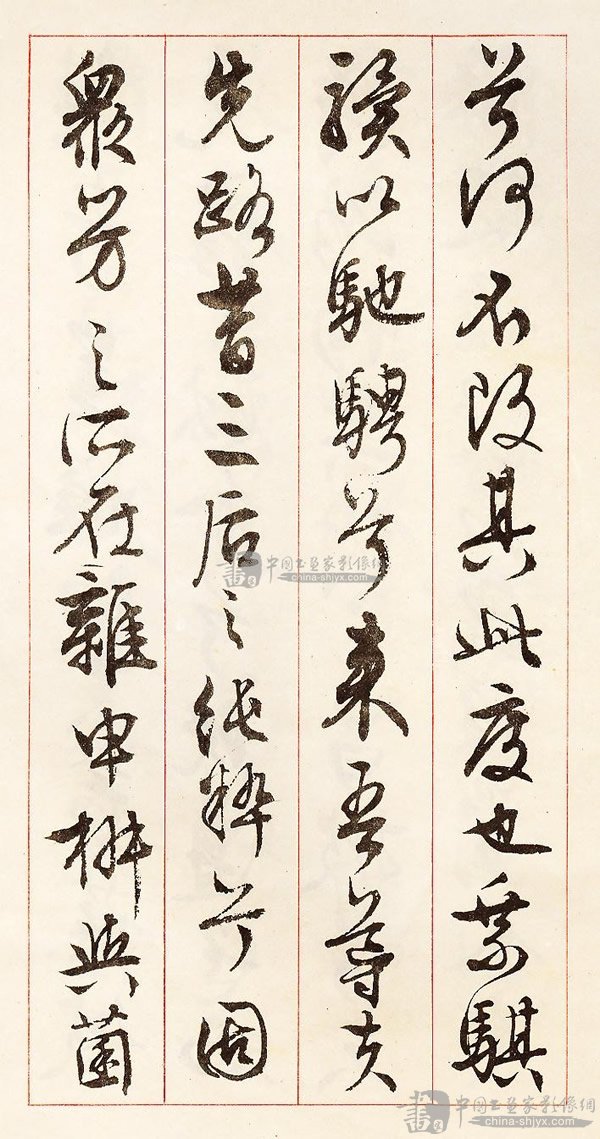 兮何不改其此度也乘騏
驥以馳騁兮來吾導夫
先路昔三后之純粹兮固
眾芳之所在雜申椒與菌
中国书画家影像網
china-shjyx.com
中国书画家影像網
china-shjyx.com